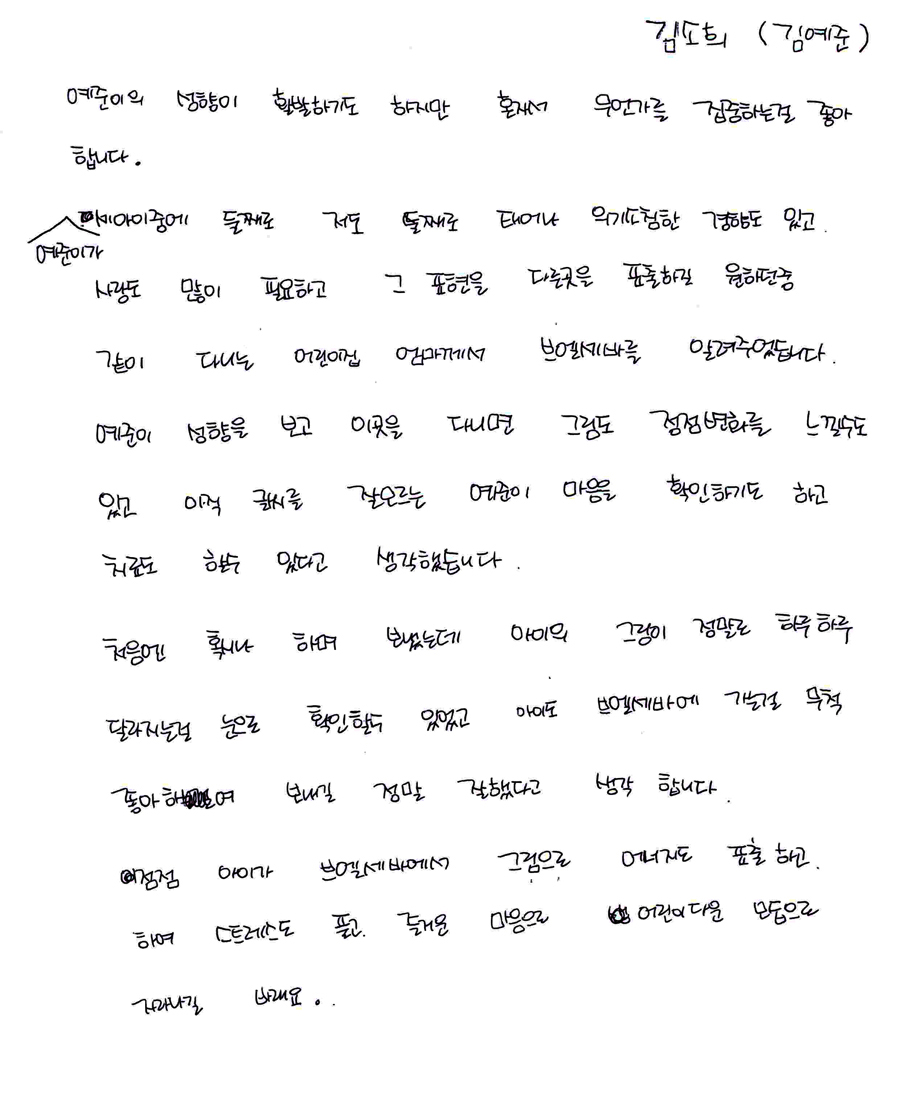 김도희 (김예준)
예준이의 성향이 활발하기도 하지만 혼자서 무언가를 집중하는걸 좋아
합니다.
세아이중에 둘째로 저도 둘째로 태어나 의기소침한 경향도 있고
예준이가
사랑도 많이 필요하고 그 표현을 다른곳을 표출하길 원하던중
같이 다니는 어린이집 엄마께서 브엘세바를 알려주었습니다.
예준이 성향을 보고 이곳을 다니면 그림도 점점변화를 느낄수도
있고 아직 글씨를 잘모르는 예준이 마음을 확인하기도 하고
치료도 할수 있다고 생각했습니다.
처음엔 혹시나 하며 보냈는데 아이의 그림이 정말로 하루하루
달라지는걸 눈으로 확인할수 있었고 아이도 브엘세바에 가는걸 무척
좋아하여 보내길 정말 잘했다고 생각 합니다.
점점 아이가 브엘세바에서 그림으로 에너지도 표출 하고.
하여 스트레스도 풀고. 즐거운 마음으로 어린이다운 모습으로
자라나길 바래요..